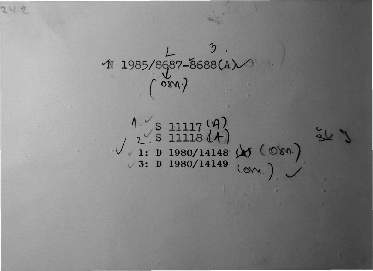 24.2
L 3.
N 1985/8687-8688(A)
(osn.)
1. S 11117 (A)
2. S 11118 (A)
1: D 1980/14148 (osn.)
3: D 1980/14149 (osn.)